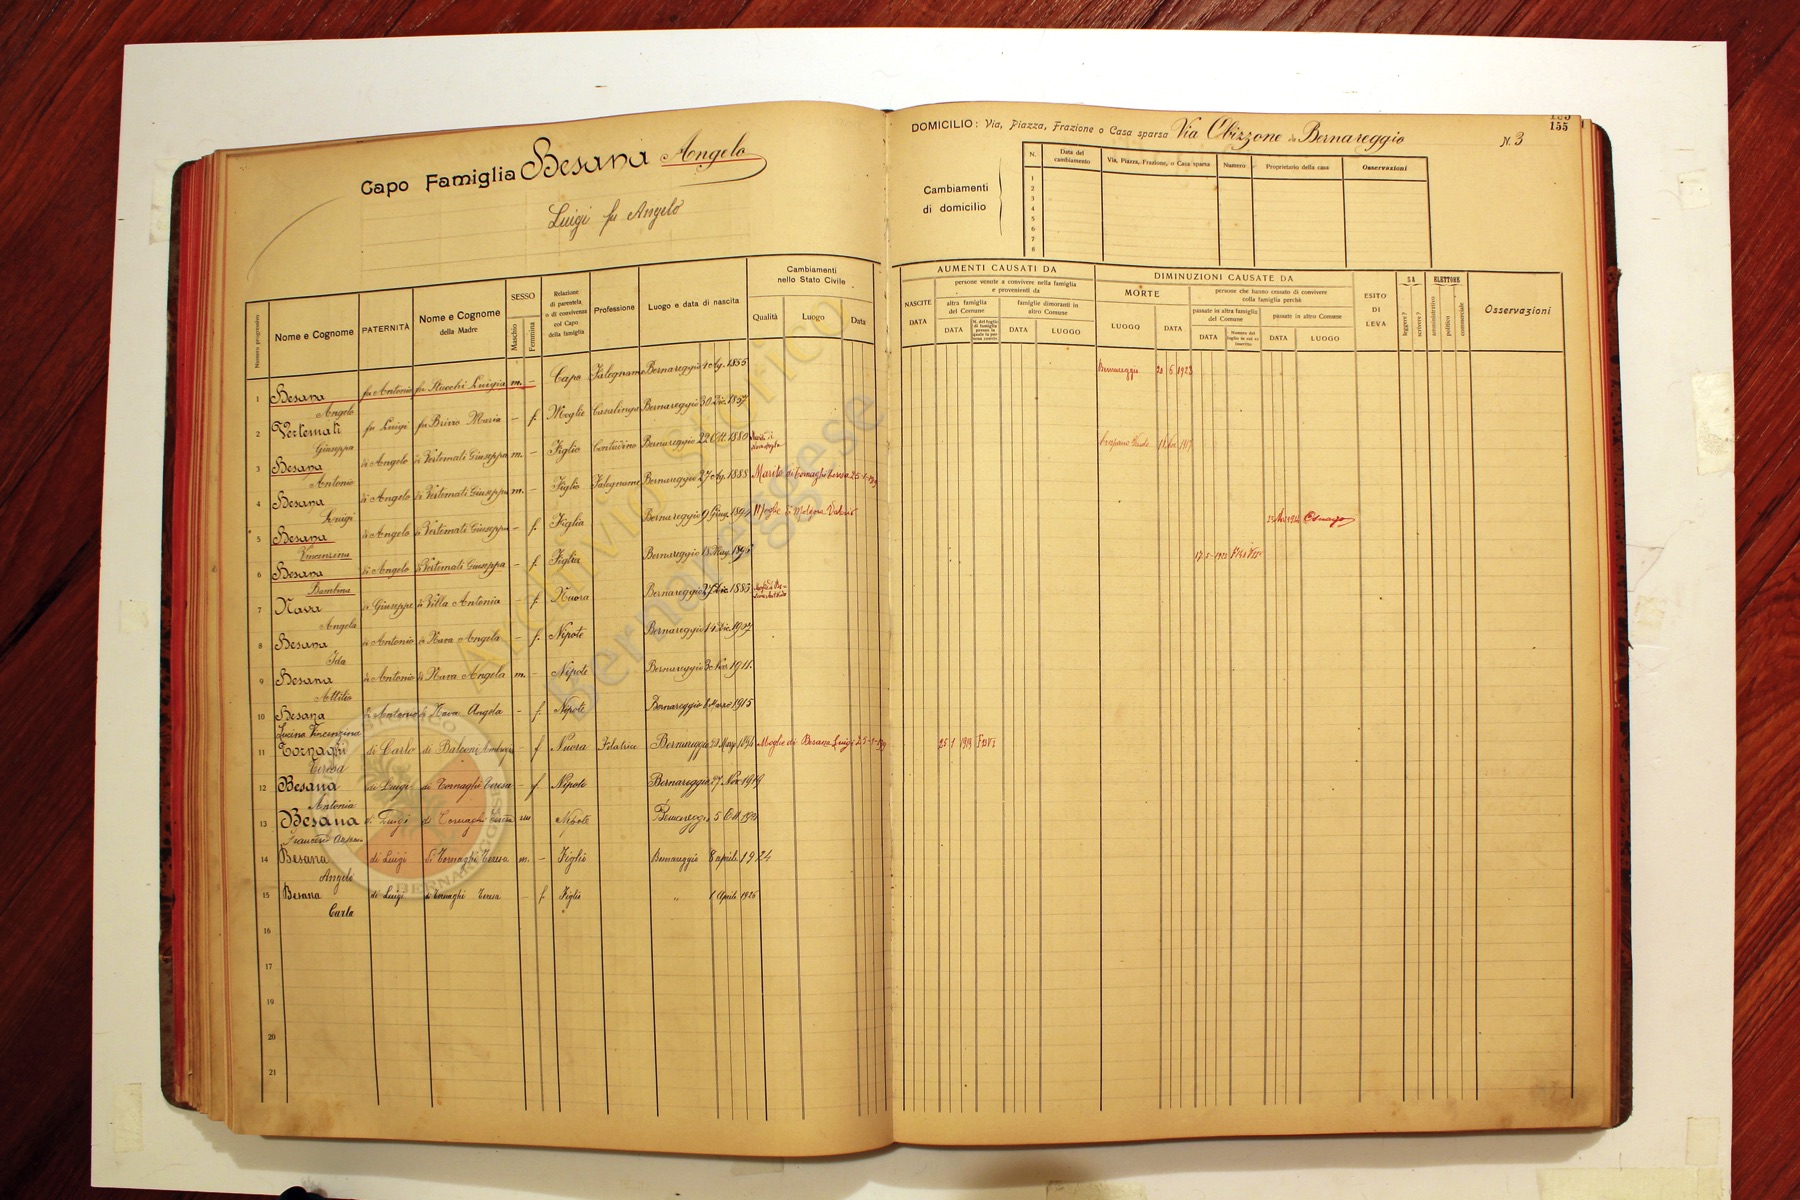 Capo Famiglia Besana Angelo
Luigi fu Angelo
DOMICILIO: Via, Piazza, Frazione o Casa sparsa Via Obizzone in Bernareggio N. 3
155
Cambiamenti di domicilio
N. Data del cambiamento Via, Piazza, Frazione, o Casa sparsa Numero Proprietario della casa Osservazioni
1
2
3
4
5
6
7
8
Numero progressivo
Nome e Cognome
PATERNITÀ
Nome e Cognome della Madre
SESSO
Maschio
Femmina
Relazione di parentela o di convivenza col Capo della famiglia
Professione
Luogo e data di nascita
Cambiamenti nello Stato Civile
Qualità Luogo Data
AUMENTI CAUSATI DA
NASCITE
DATA
persone venute a convivere nella famiglia e provenienti da
altra famiglia del Comune
famiglie dimoranti in altro Comune
DATA
DATA LUOGO
DIMINUZIONI CAUSATE DA
MORTE
LUOGO DATA
persone che hanno cessato di convivere colla famiglia perchè
passate in altra famiglia del Comune
passate in altro Comune
DATA
DATA LUOGO
ESITO DI LEVA
SA
leggere?
scrivere?
ELETTORE
amministrativo
politico
commerciale
Osservazioni
1 Besana Angelo fu Antonio fu Stucchi Luigia m. - Capo Falegname Bernareggio 4 Ag. 1855 Bernareggio 20 6 1923
2 Vertemati Giuseppa fu Luigi fu Brivio Maria - f. Moglie Casalinga Bernareggio 30 Dic. 1857
3 Besana Antonio di Angelo di Vertemati Giuseppa m. - Figlio Contadino Bernareggio 22 Ott. 1880
4 Besana Luigi di Angelo di Vertemati Giuseppa m. - Figlio Falegname Bernareggio 27 Ag. 1888 Marito di Tornaghi Teresa 25-1-919
5 Besana Vincenzina di Angelo di Vertemati Giuseppa - f. Figlia Bernareggio 9 Giug. Moglie di Valerio
6 Besana Bambina di Angelo di Vertemati Giuseppa - f. Figlia Bernareggio 17-5-1922
7 Nava Angela di Giuseppe di Villa Antonia - f. Nuora Bernareggio 27 Dic. 1883
8 Besana Ida di Antonio di Nava Angela - f. Nipote Bernareggio 14 Dic. 1907
9 Besana Attilio di Antonio di Nava Angela m. - Nipote Bernareggio 3 Nov. 1911
10 Besana Lucina Vincenzina di Antonio di Nava Angela - f. Nipote Bernareggio 6 Marzo 1915
11 Tornaghi Teresa di Carlo di Balconi - f Nuora Filatrice Bernareggio Mag. 1894 Moglie di Besana Luigi 25-1-919 25 1 1919
12 Besana Antonia di Luigi di Tornaghi Teresa - f Nipote Bernareggio 27 Nov. 1919
13 Besana di Luigi di Tornaghi Teresa m Nipote Bernareggio 5 Ott.
14 Besana Angelo di Luigi di Tornaghi Teresa m. - Figlio Bernareggio 8 aprile 1924
15 Besana Carla di Luigi di Tornaghi Teresa - f. Figlia " 1 Aprile 1926
16
17
18
19
20
21
Archivio Storico Bernareggese